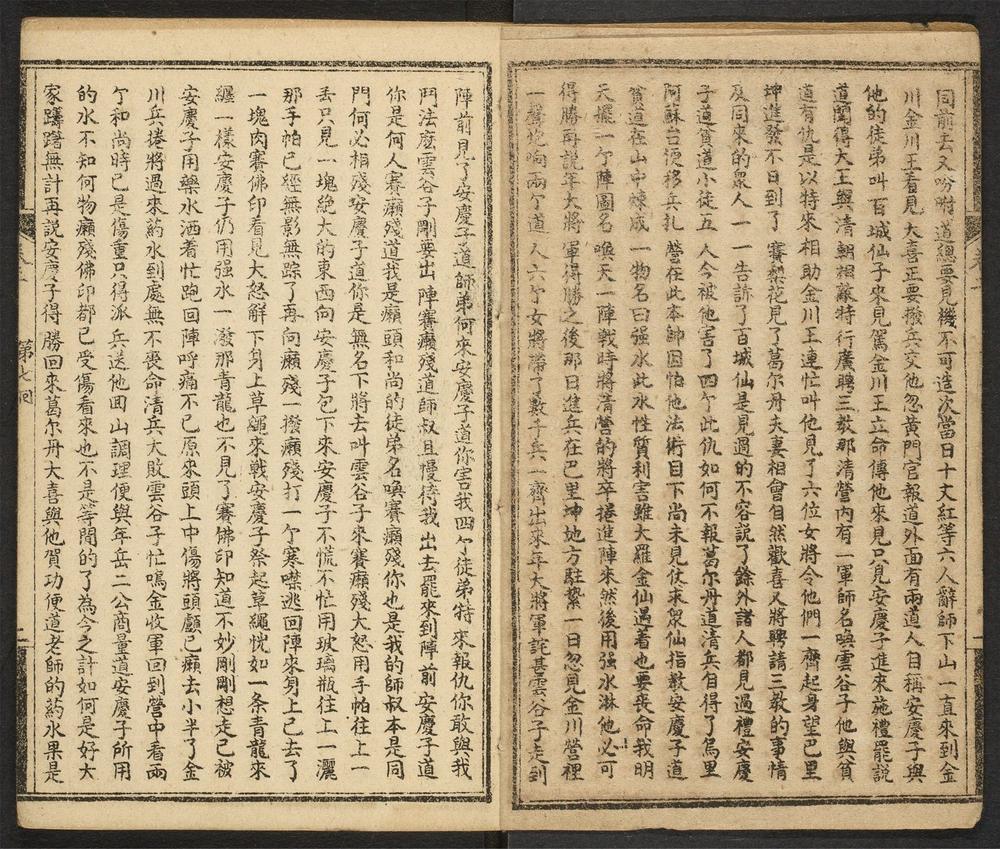 同前去又吩咐道總要見機不可造次當日十丈紅等六人辭師下山一直來到金
川金川王看見大喜正要撥兵交他忽黃門官報道外面有兩道人自稱安慶子與
他的徒弟叫百城仙子來見駕金川王立命傳他來見只見安慶子進來施禮罷説
道聞得大王與清朝相敵特行廣聘三教那清營內有一軍師名喚雲谷子他與貧
道有仇是以特來相助金川王連忙叫他見了六位女將令他們一齊起身望巴里
坤進發不日到了賽梨花見了葛尔丹夫妻相會自然歡喜又將聘請三教的事情
及同來的衆人一一告訴了百城仙是見過的不容説了餘外諸人都見過禮安慶
子道貧道小徒五人今被他害了四个此仇如何不報葛尔丹道清兵自得了烏里
阿蘇台便移兵扎營在此本帥因怕他法術目下尚未見仗求衆仙指教安慶子道
貧道在山中煉成一物名曰强水此水性質利害雖大羅金仙遇着也要喪命我明
天擺一个陣圖名喚天一陣戰時將清營的將卒捲進陣來然後用强水淋他必可
得勝再説年大將軍得勝之後那日進兵在巴里坤地方駐紮一日忽見金川營裡
一聲炮响兩个道人六个女將帶了數千兵一齊出來年大將軍詫甚雲谷子走到
陣前見了安慶子道師弟何來安慶子道你害我四个徒弟特來報仇你敢與我
鬥法麽雲谷子剛要出陣賽癩殘道師叔且慢待我出去罷來到陣前安慶子道
你是何人賽癩殘道我是癩頭和尚的徒弟名喚賽癩殘你也是我的師叔本是同
門何必相殘安慶子道你是無名下將去叫雲谷子來賽癩殘大怒用手帕往上一
丢只見一塊絶大的東西向安慶子包下來安慶子不慌不忙用玻璃瓶往上一灑
那手帕已經無影無踪了再向癩殘一撥癩殘打一个寒噤逃回陣來身上已去了
一塊肉賽佛印看見大怒解下身上草繩來戰安慶子祭起草繩恍如一条青龍來
纏一樣安慶子仍用强水一潑那青龍也不見了賽佛印知道不妙剛剛想走已被
安慶子用藥水洒着忙跑回陣呼痛不已原來頭上中傷將頭顱已癩去小半了金
川兵捲將過來葯水到處無不喪命清兵大敗雲谷子忙鳴金收軍回到營中看兩
个和尚時已是傷重只得派兵送他囬山調理便與年岳二公商量道安慶子所用
的水不知何物癩殘佛印都已受傷看來也不是等閒的了為今之計如何是好大
家躊躇無計再説安慶子得勝回來葛尔丹大喜與他賀功便道老師的葯水果是
第七回
二